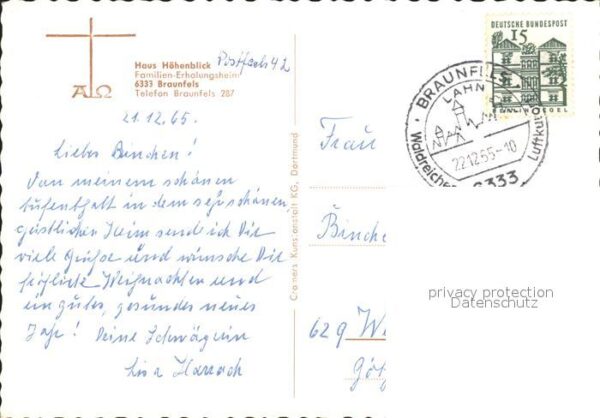 Haus Höhenblick
Familien-Erholungsheim
6333 Braunfels
Telefon Braunfels 287
Postfach 42
21.12.65.
Liebes Binchen!
Von meinem schönen
Aufenthalt in dem sehr schönen
geistlichen Heim sende ich Dir
viele Grüße und wünsche Dir
fröhliche Weihnachten und
ein gutes, gesundes neues
Jahr! Deine Schwägerin
Lisa
Cramers Kunstanstalt KG, Dortmund
DEUTSCHE BUNDESPOST
15
BRAUNFELS
LAHN
Waldreicher Luftkurort
22.12.65-10
6333
Frau
Binche
629 W
Göt
privacy protection
Datenschutz